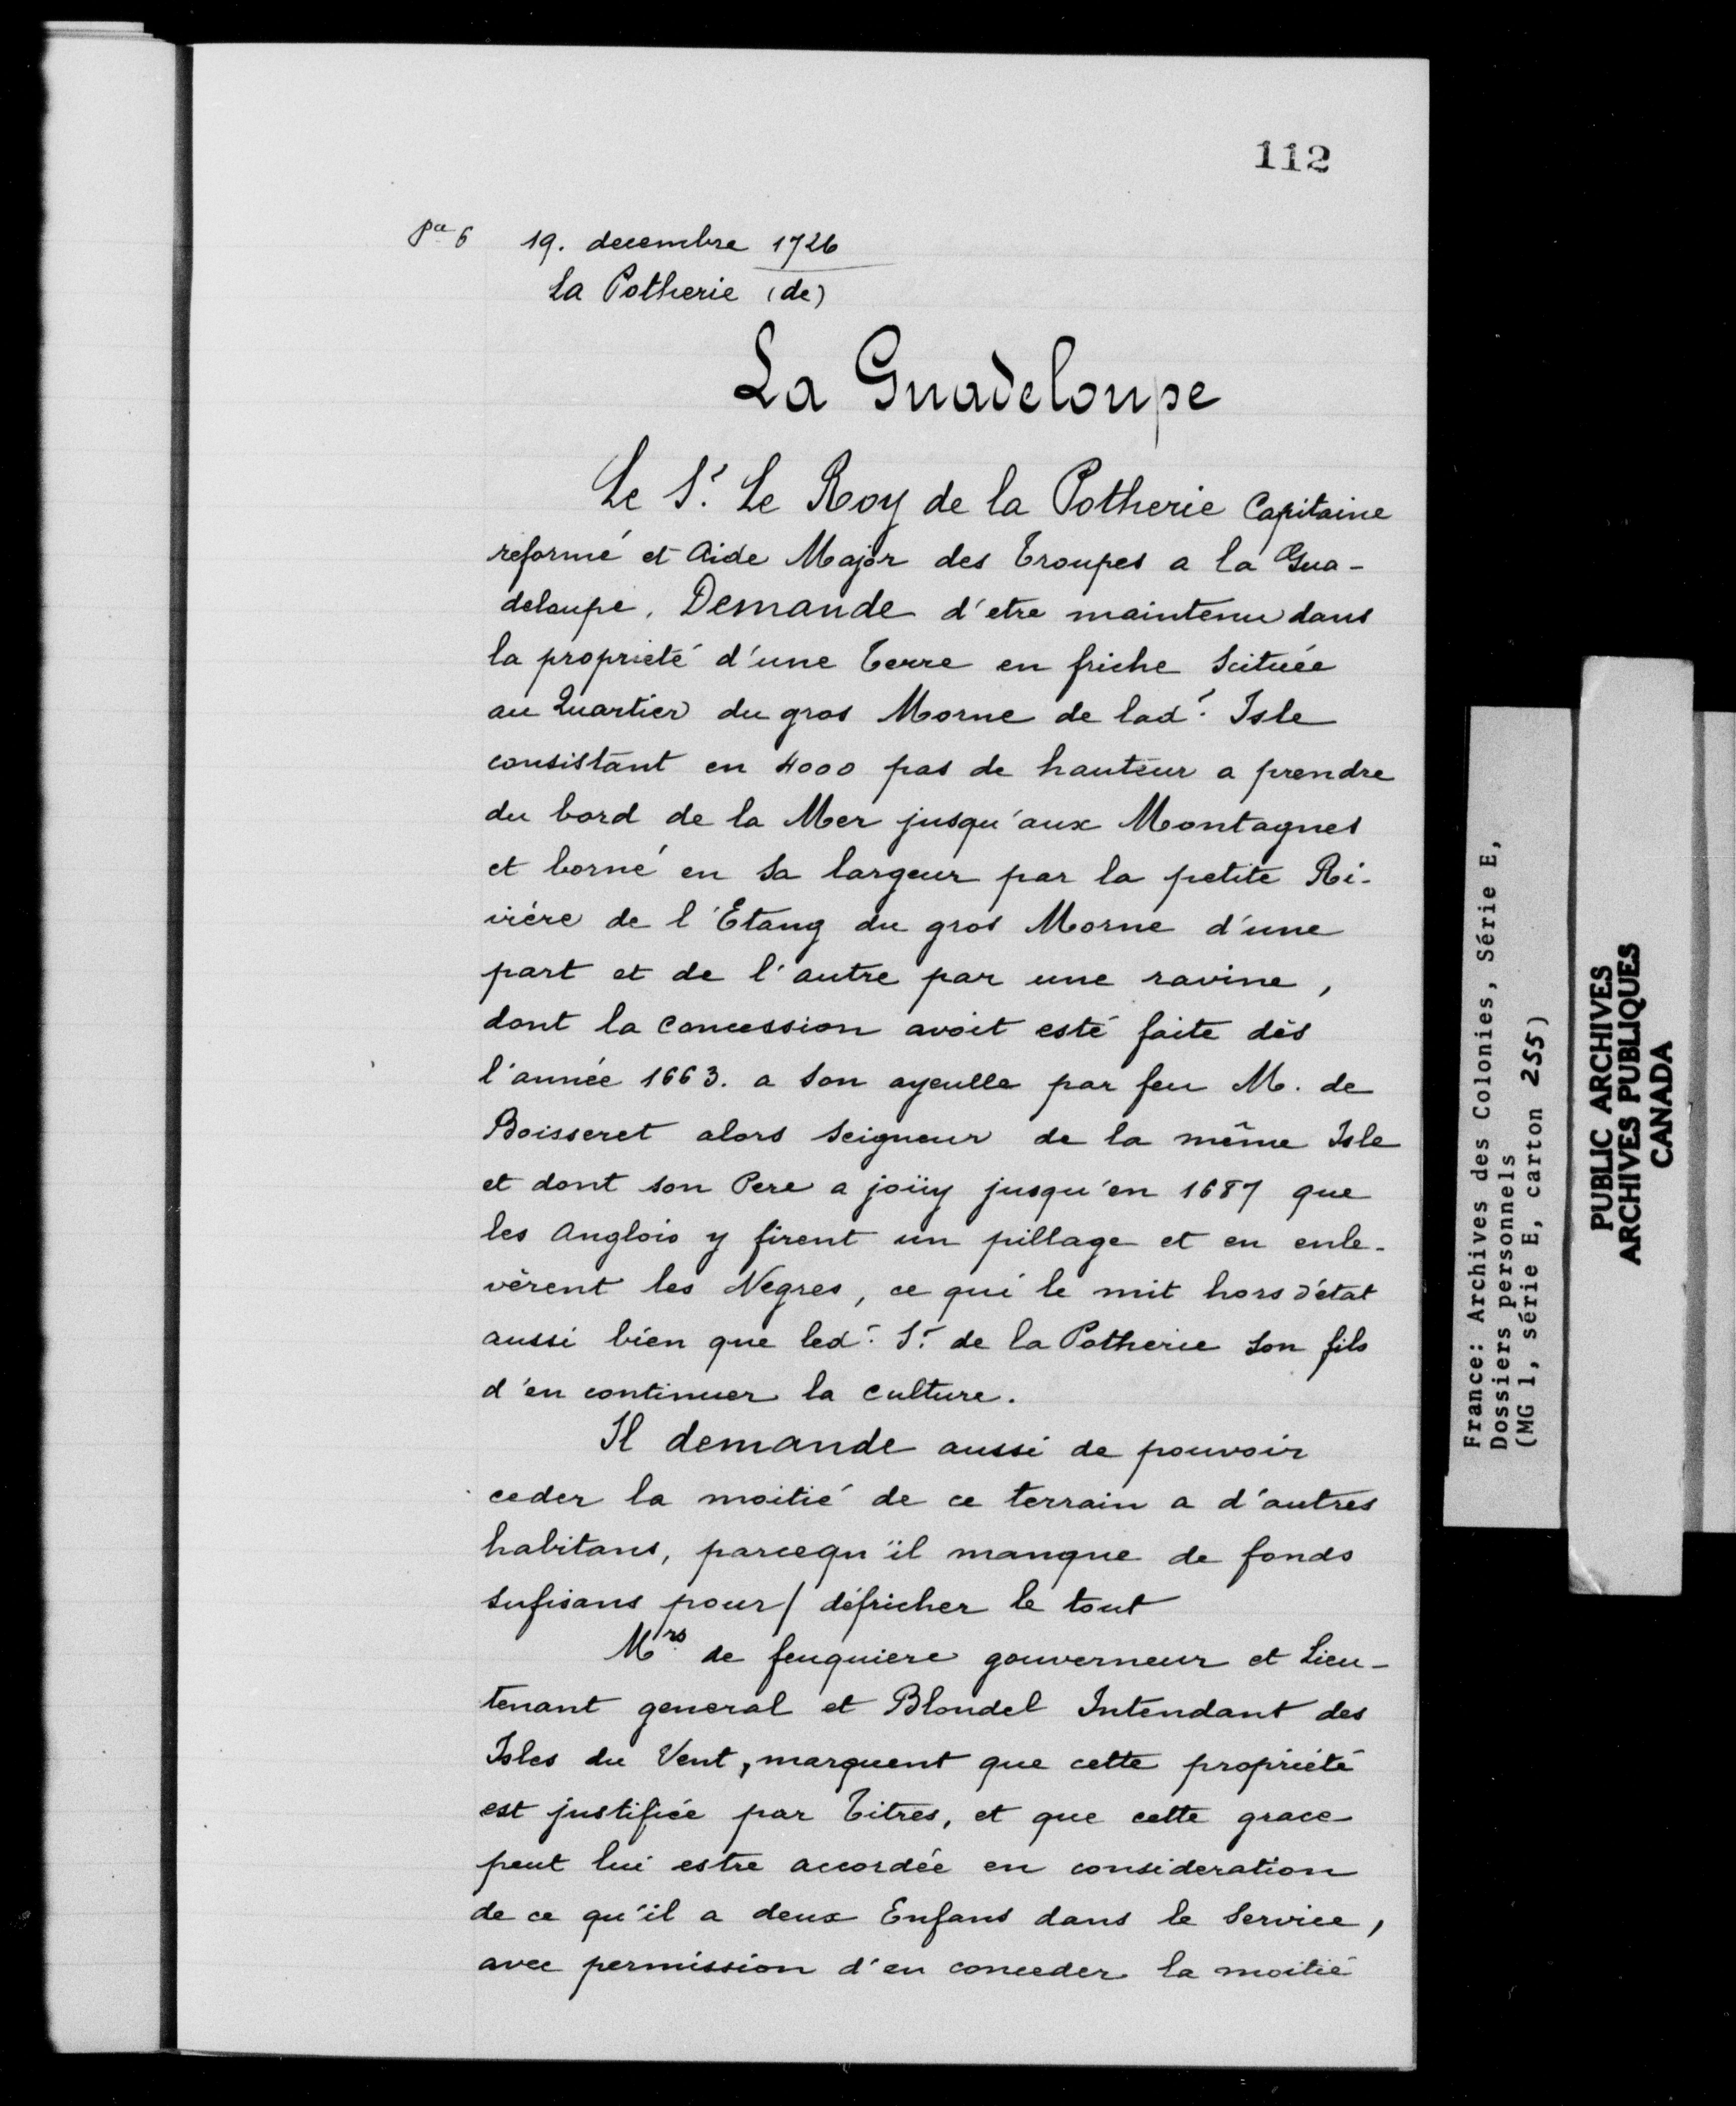 112
pce 6 19. decembre 1726
La Potherie (de)
La Guadeloupe
Le Sr. Le Roy de la Potherie Capitaine
reformé et Aide Major des Troupes a la Gua-
deloupe, Demande d'etre maintenu dans
la proprieté d'une Terre en friche Scituée
au Quartier du gros Morne de lad.e Isle
consistant en 4000 pas de hauteur a prendre
du bord de la Mer jusqu'aux Montagnes
et borné en sa largeur par la petite Ri-
viére de l'Etang du gros Morne d'une
part et de l'autre par une ravine,
dont la concession avoit esté faite dès
l'année 1663. a son ayeulle par feu M. de
Boisseret alors Seigneur de la même Isle
et dont son Pere a joüy jusqu'en 1687 que
les Anglois y firent un pillage et en enle-
vèrent les Negres, ce qui le mit hors d'état
aussi bien que led.t Sr. de la Potherie son fils
d'en continuer la culture.
Il demande aussi de pouvoir
ceder la moitié de ce terrain a d'autres
habitans, parcequ'il manque de fonds
sufisans pour/ défricher le tout
Mrs de feuquiere gouverneur et Lieu-
tenant general et Blondel Intendant des
Isles du Vent, marquent que cette propriété
est justifiée par Titres, et que cette grace
peut lui estre accordée en consideration
de ce qu'il a deux Enfans dans le Service,
avec permission d'en conceder la moitié
France: Archives des Colonies, Série E,
Dossiers personnels
(MG 1, série E, carton 255)
PUBLIC ARCHIVES
ARCHIVES PUBLIQUES
CANADA